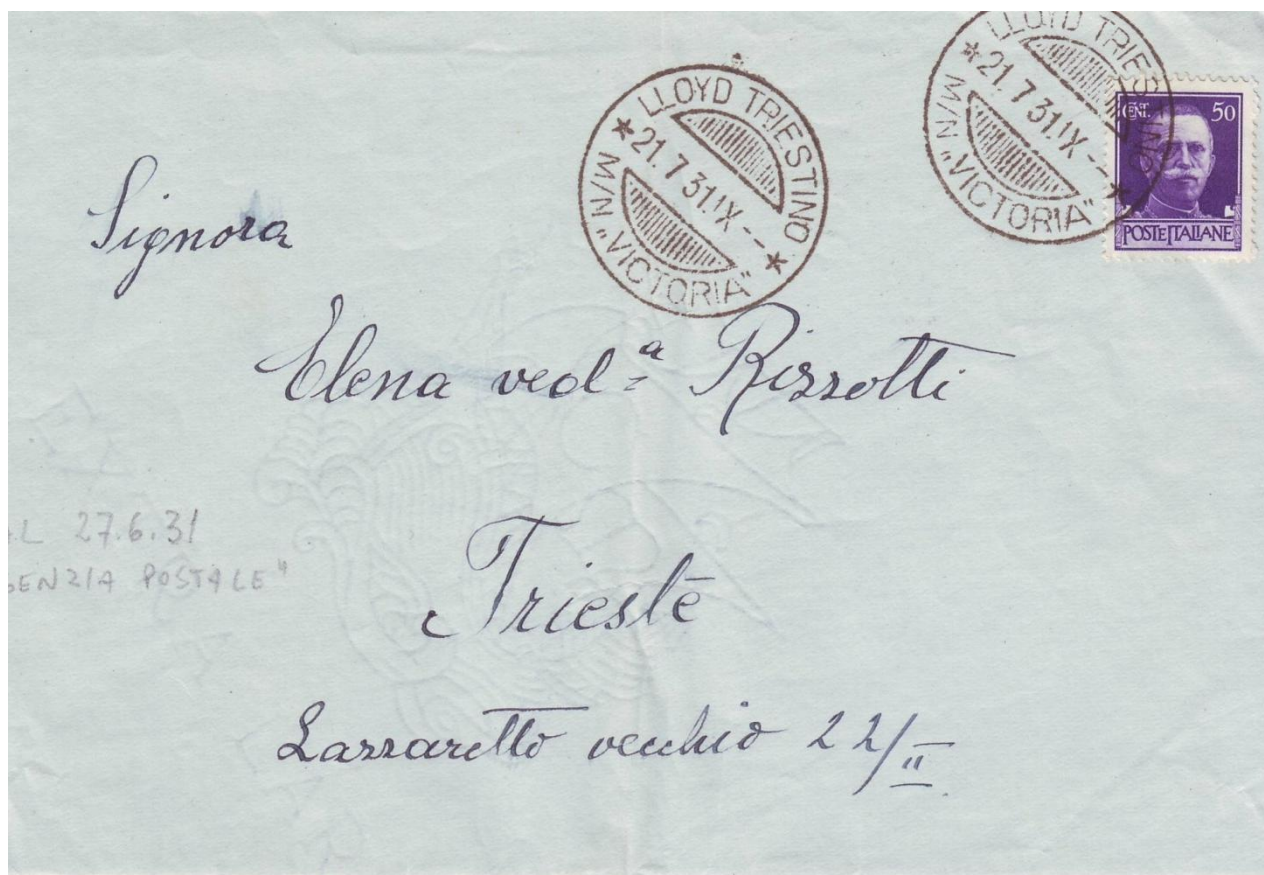 LLOYD TRIESTINO
★ 21.7 31.IX -- ★
M/N „VICTORIA"
LLOYD TRIESTINO
★ 21.7 31.IX -- ★
M/N „VICTORIA"
CENT. 50
POSTE ITALIANE
Signora
Elena ved.ª Rizzotti
27.6.31
POSTALE"
Trieste
Lazzaretto vecchio 22/II